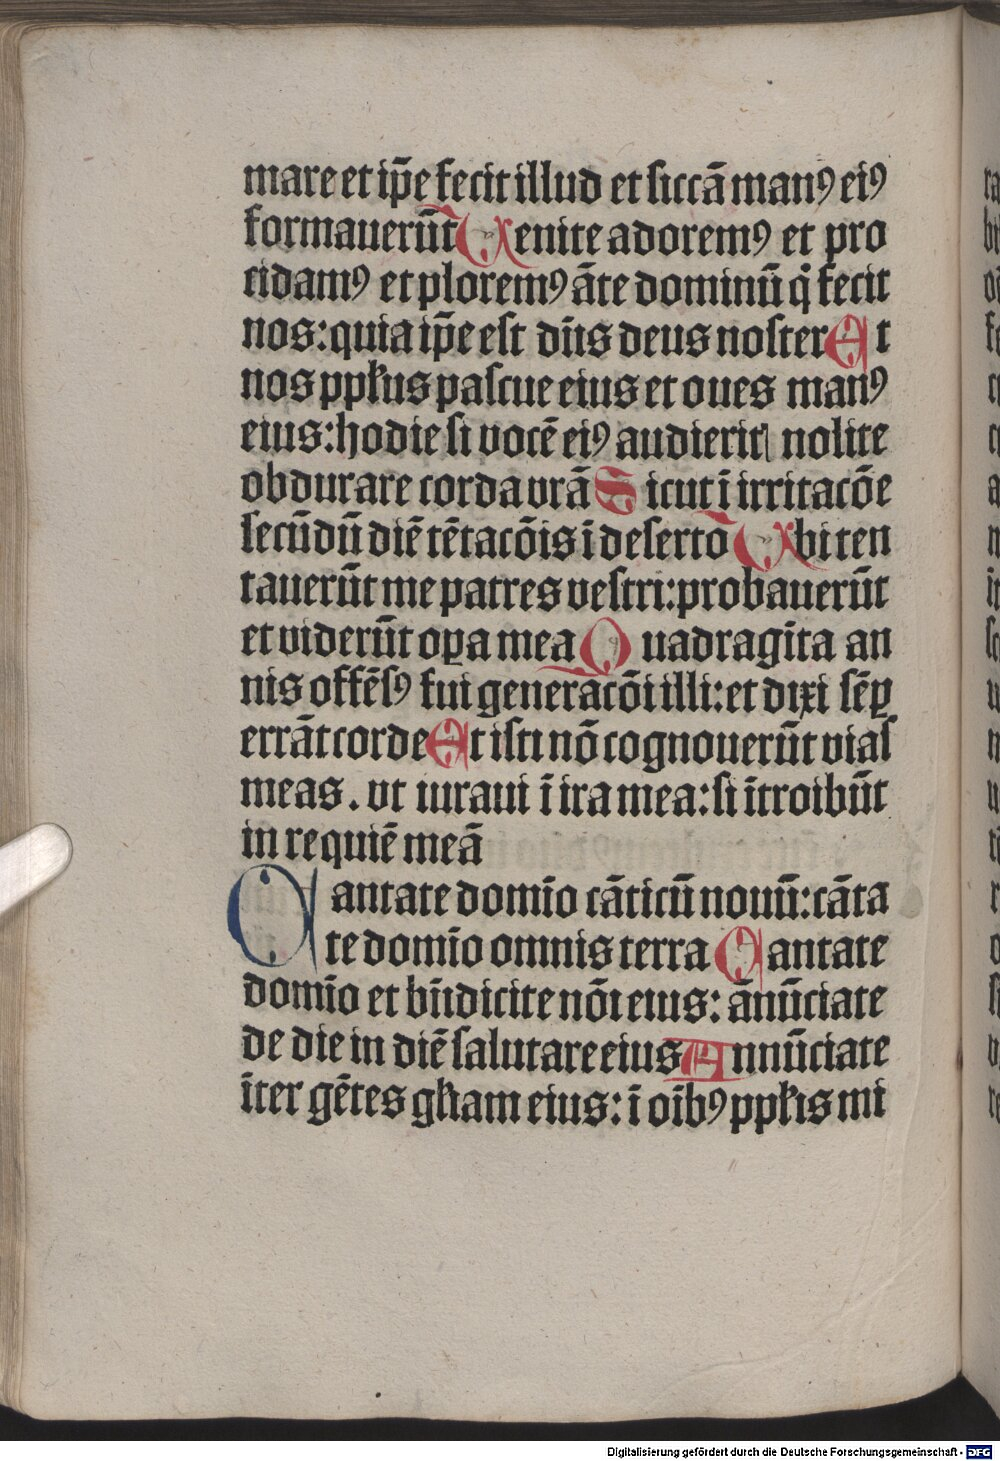 mare et ip̄e fecit illud et siccā manꝰ eiꝰ
formauerūt Venite adoremꝰ et pro
cidamꝰ et ploremꝰ āte dominū qͥ fecit
nos: quia ip̄e est dn̄s deus noster Et
nos ppl̄us pascue eius et oues manꝰ
eius: hodie si vocē eiꝰ audierit̉ nolite
obdurare corda vrā Sicut ī irritacōe
secūdū diē tētacōis ī deserto Vbi ten
tauerūt me patres vestri: probauerūt
et viderūt oꝑa mea Quadragīta an
nis offēsꝰ fui generacōi illi: et dixi sēꝑ
errāt corde Et isti nō cognouerūt vias
meas . vt iuraui ī ira mea: si ītroibūt
in requiē meā
Cantate domīo cāticū nouū: cāta
te domīo omnis terra Cantate
domīo et bn̄dicite nōi eius: ānūciate
de die in diē salutare eius Annūciate
īter gētes gl̄iam eius: ī oībꝰ ppl̄is mi
Digitalisierung gefördert durch die Deutsche Forschungsgemeinschaft - DFG